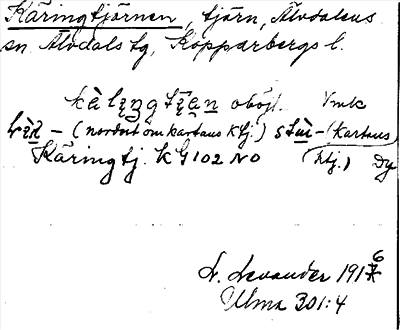 Käringtjärnen, tjärn, Älvdalens
sn. Älvdals tg, Kopparbergs l.
kàlıŋgtjạ̈n oböjl. Vmk
(nordost om kartans K tj.) (kartans
Käringtj. K G 102 NO Ktj.) Dy
L. Levander 1916
Ulma 301:4